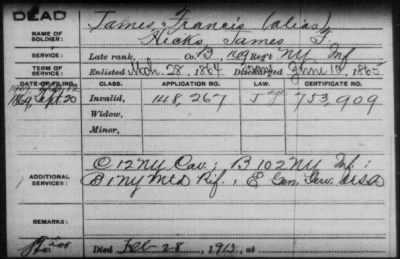 DEAD
NAME OF SOLDIER: James, Francis (alias)
Hicks, James F.
SERVICE: Late rank, Co. B, 149 Reg't NY Inf
TERM OF SERVICE: Enlisted Mch. 28, 1864 Discharged June 12, 1865
DATE OF FILING. CLASS. APPLICATION NO. LAW. CERTIFICATE NO.
1869, Sept. 20 Invalid, 148,267 753,909
Widow,
Minor,
ADDITIONAL SERVICES: C 12 NY Cav; B 102 NY Inf;
B 1 NY Mtd Rif., E Gen. Serv. USA
REMARKS:
Died Feb 28, 1913, at